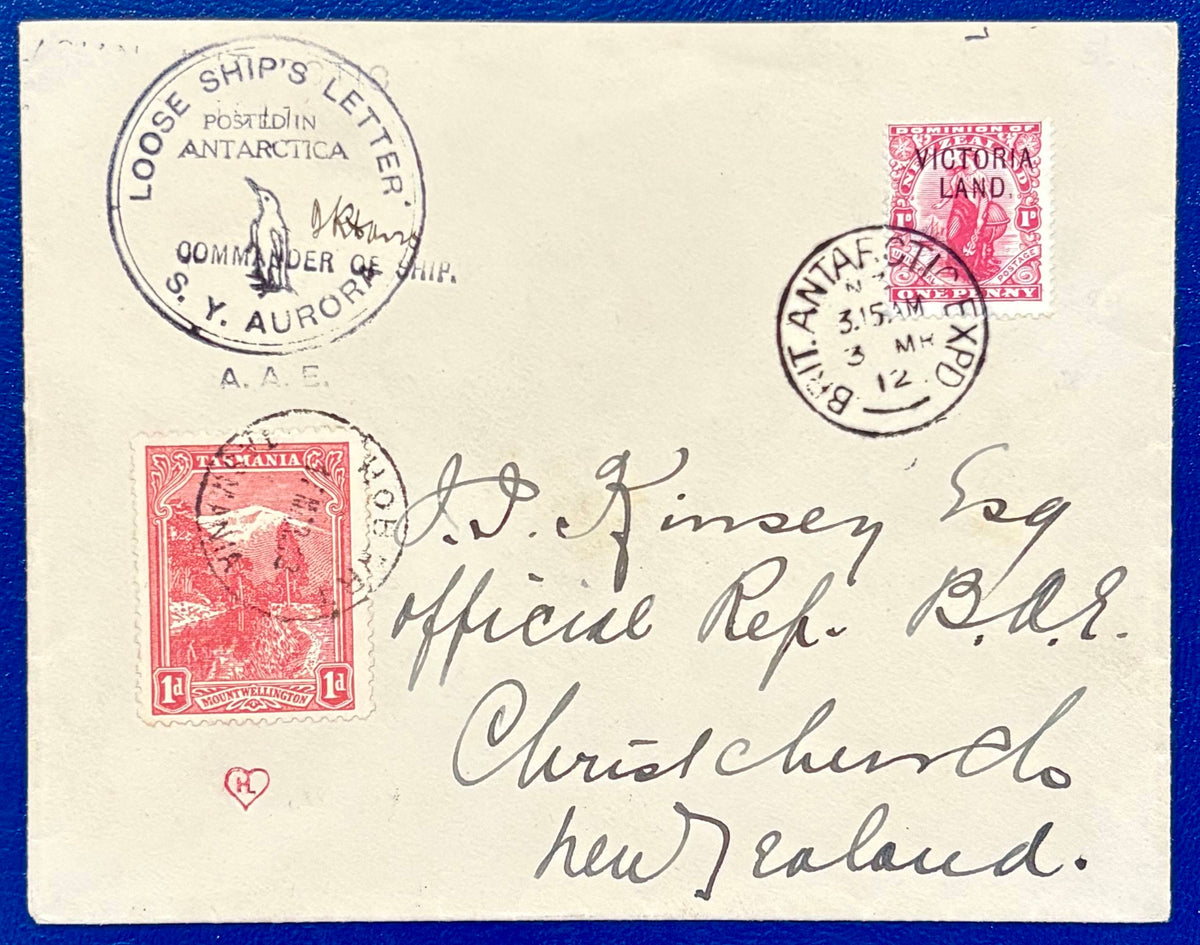 LOOSE SHIP'S LETTER
POSTED IN
ANTARCTICA
COMMANDER OF SHIP.
S. Y. AURORA
A. A. E.
DOMINION OF
NEW ZEALAND
VICTORIA
LAND.
1D 1D
UNIVERSAL POSTAGE
ONE PENNY
BRIT. ANTARCTIC EXPD
3.15 AM
3 MR
12
TASMANIA
1d MOUNT WELLINGTON 1d
HOBART
TASMANIA
J.J. Kinsey Esq
Official Rep. B.A.E.
Christchurch
New Zealand.
HL